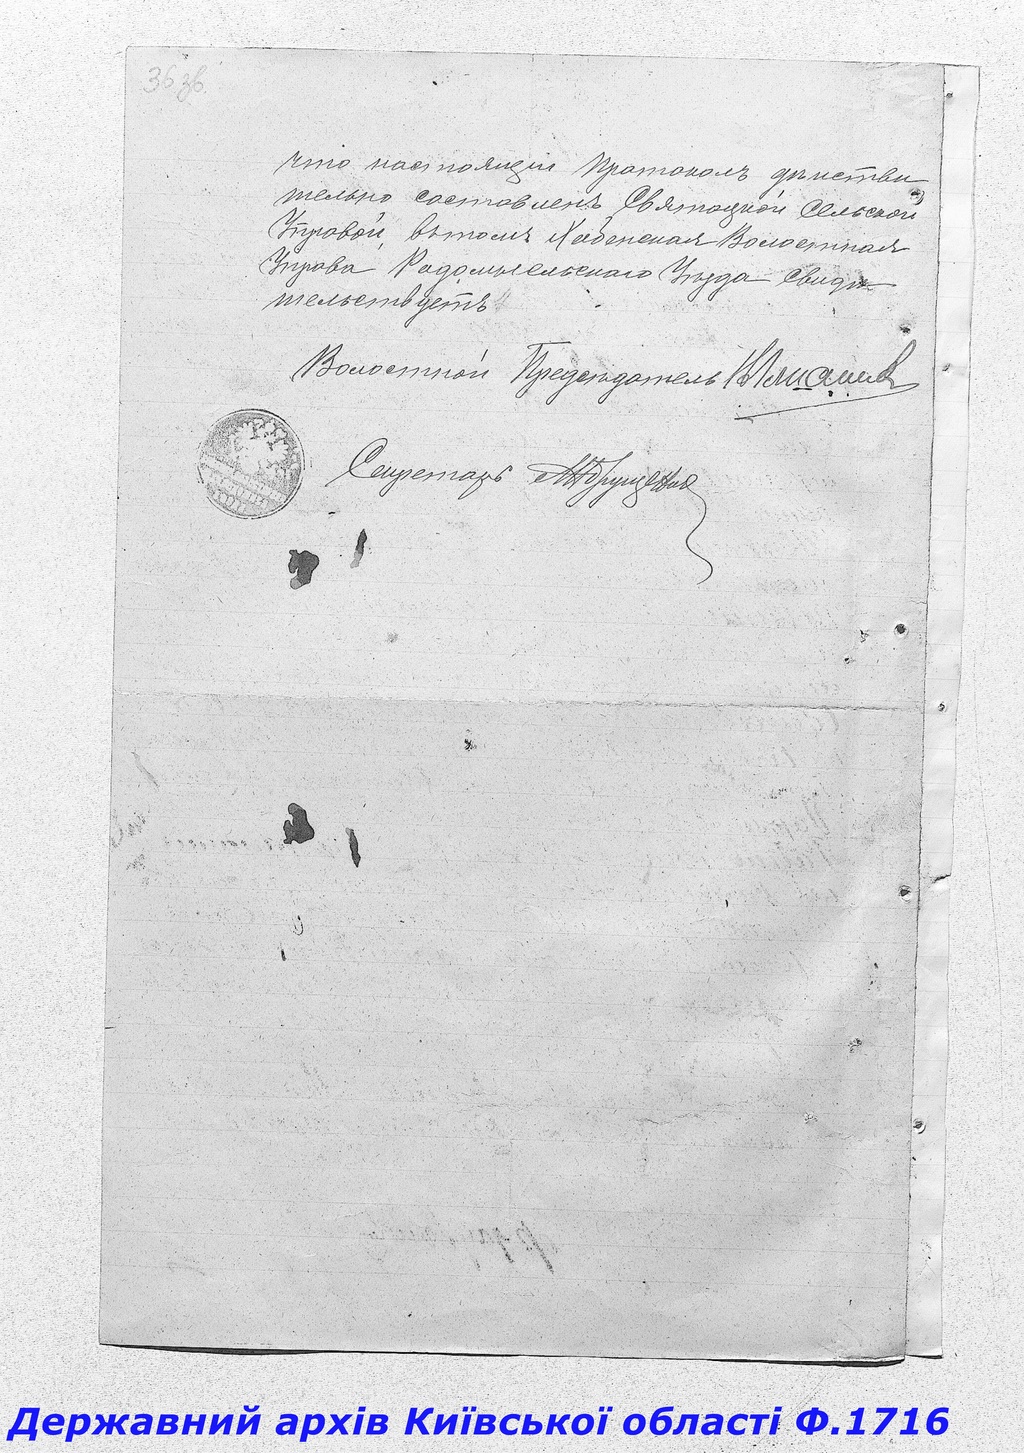 36 зв.
что настоящий Протоколъ действи
тельно составленъ Святоцкой Сельской
Управой, въ томъ Хабенская Волостная
Управа Радомысльскаго Уезда свиде
тельствуетъ
Волостной Председатель
Секретарь
Державний архів Київської області Ф.1716